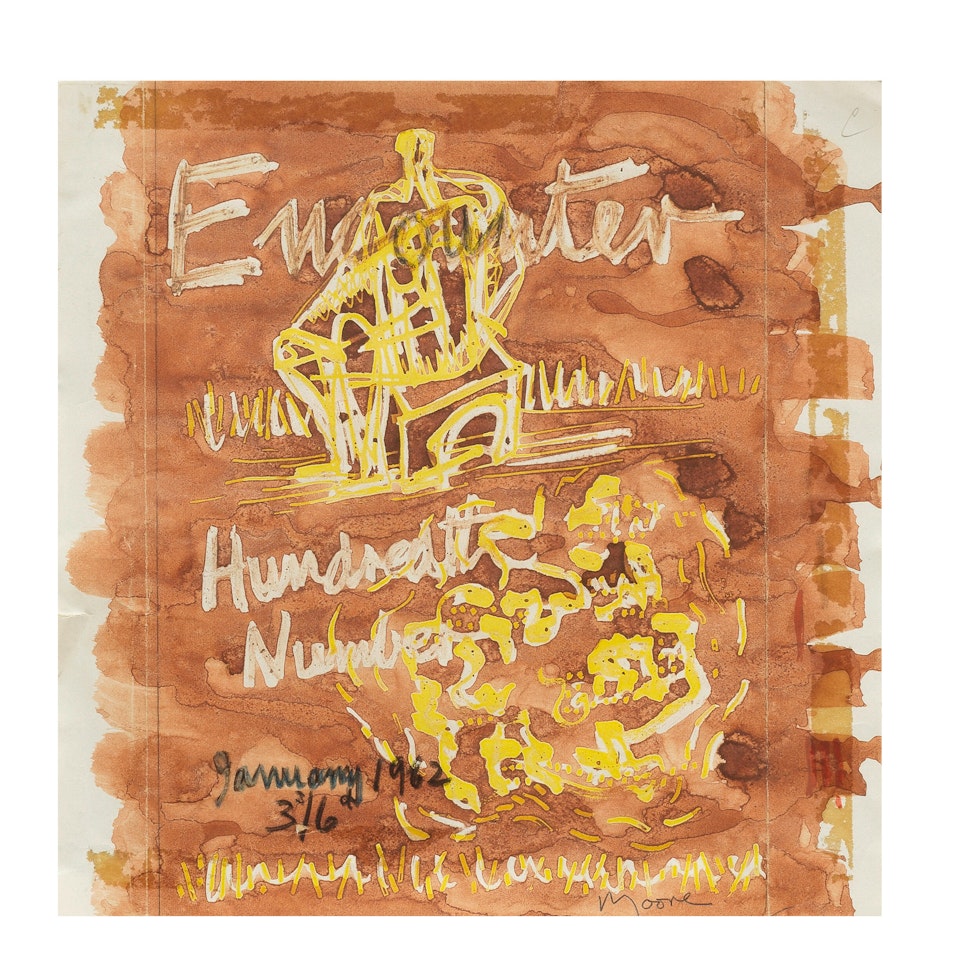 C
Encounter
Hundredth
Number
January 1962
3/6d
Moore